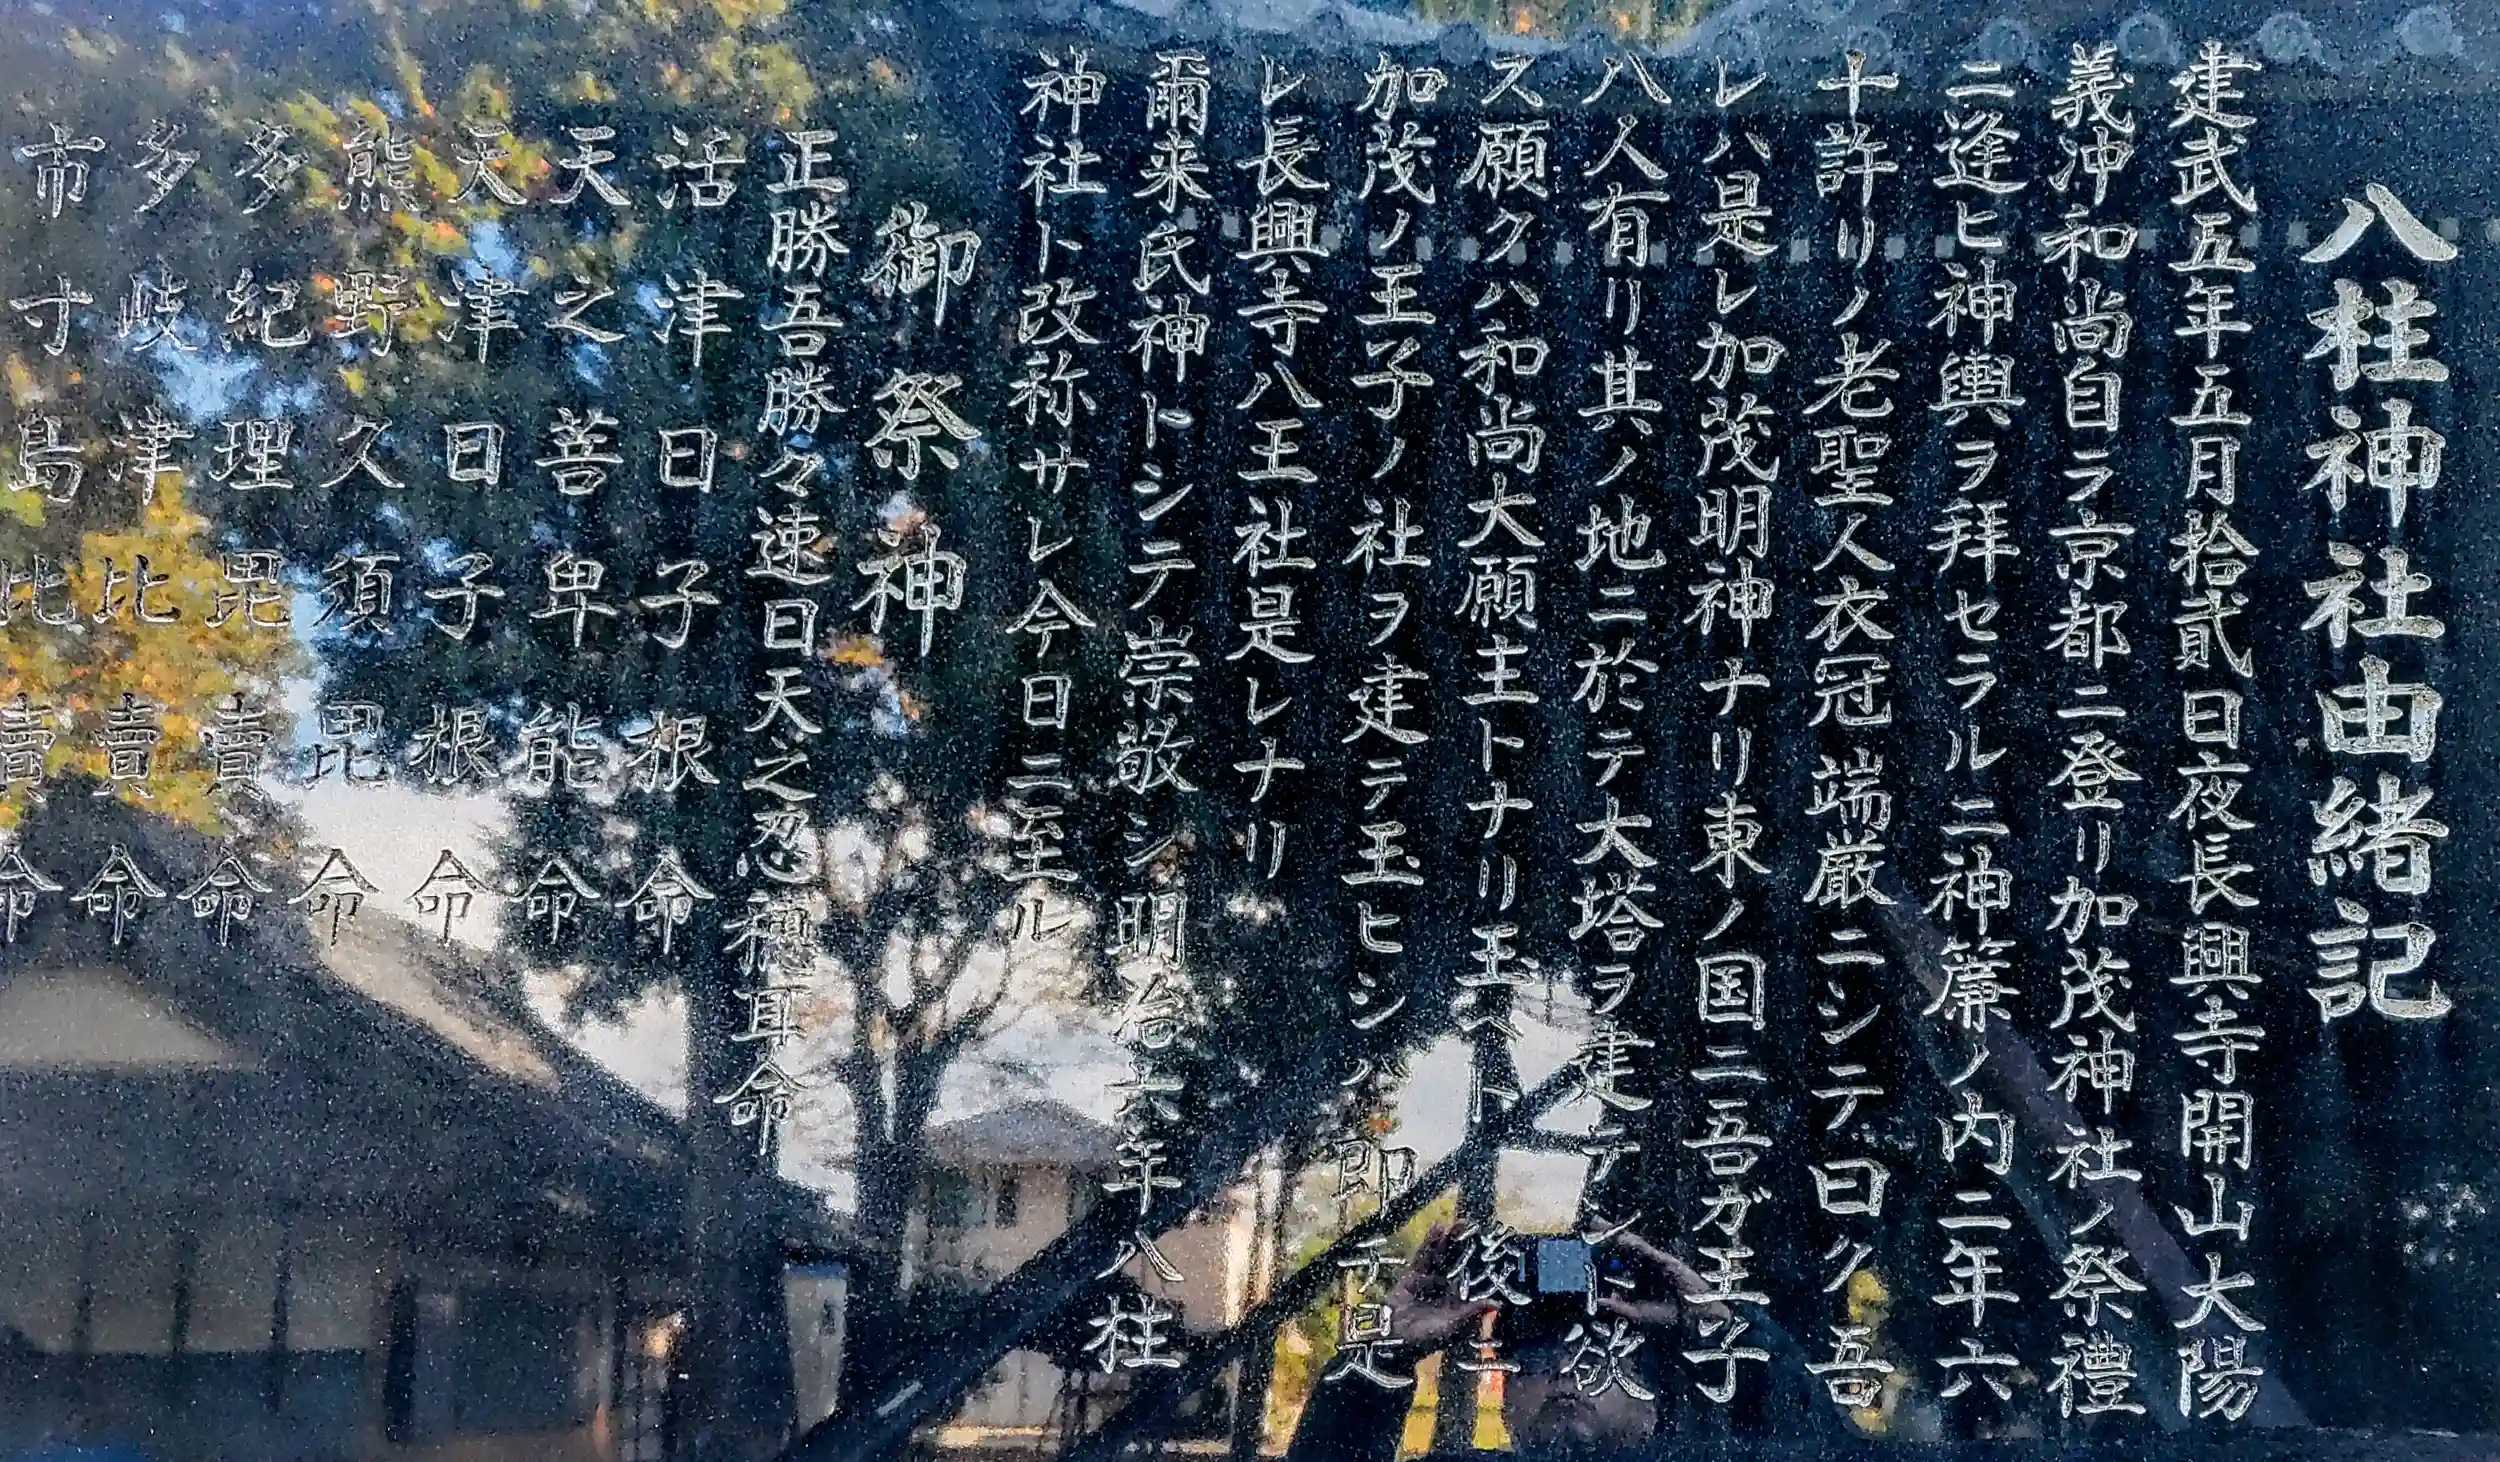 八柱神社由緒記
建武五年五月拾貳日夜長興寺開山大陽
義沖和尚自ラ京都ニ登リ加茂神社ノ祭禮
ニ逢ヒ神輿ヲ拜セラルニ神簾ノ内ニ年六
十許リノ老聖人衣冠端厳ニシテ曰ク吾
レハ是レ加茂明神ナリ東ノ国ニ吾ガ王子
八人有リ其ノ地ニ於テ大塔ヲ建テント欲
ス願クハ和尚大願主トナリ玉ヘト後ニ
加茂ノ王子ノ社ヲ建テ玉ヒシハ即チ是
レ長興寺八王社是レナリ
爾来氏神トシテ崇敬シ明治六年八柱
神社ト改称サレ今日ニ至ル
御祭神
正勝吾勝々速日天之忍穂耳命
活津日子根命
天之菩卑能命
天津日子根命
熊野久須毘命
多紀理毘賣命
多岐津比賣命
市寸島比賣命